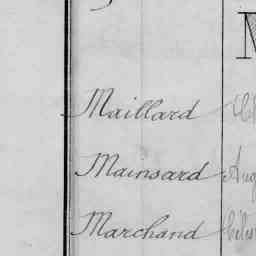 M
Maillard
Mainsard Aug
Marchand